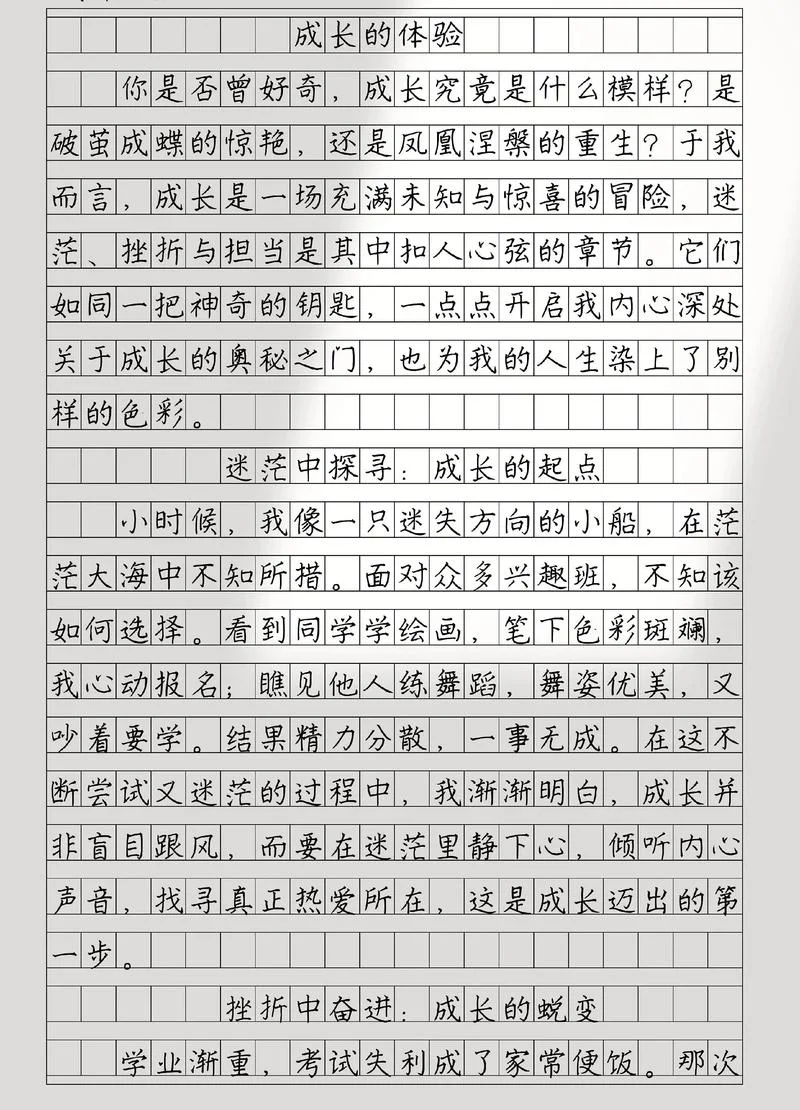 成长的体验
你是否曾好奇，成长究竟是什么模样？是
破茧成蝶的惊艳，还是凤凰涅槃的重生？于我
而言，成长是一场充满未知与惊喜的冒险，迷
茫、挫折与担当是其中扣人心弦的章节。它们
如同一把神奇的钥匙，一点点开启我内心深处
关于成长的奥秘之门，也为我的人生染上了别
样的色彩。
迷茫中探寻：成长的起点
小时候，我像一只迷失方向的小船，在茫
茫大海中不知所措。面对众多兴趣班，不知该
如何选择。看到同学学绘画，笔下色彩斑斓，
我心动报名；瞧见他人练舞蹈，舞姿优美，又
吵着要学。结果精力分散，一事无成。在这不
断尝试又迷茫的过程中，我渐渐明白，成长并
非盲目跟风，而要在迷茫里静下心，倾听内心
声音，找寻真正热爱所在，这是成长迈出的第
一步。
挫折中奋进：成长的蜕变
学业渐重，考试失利成了家常便饭。那次